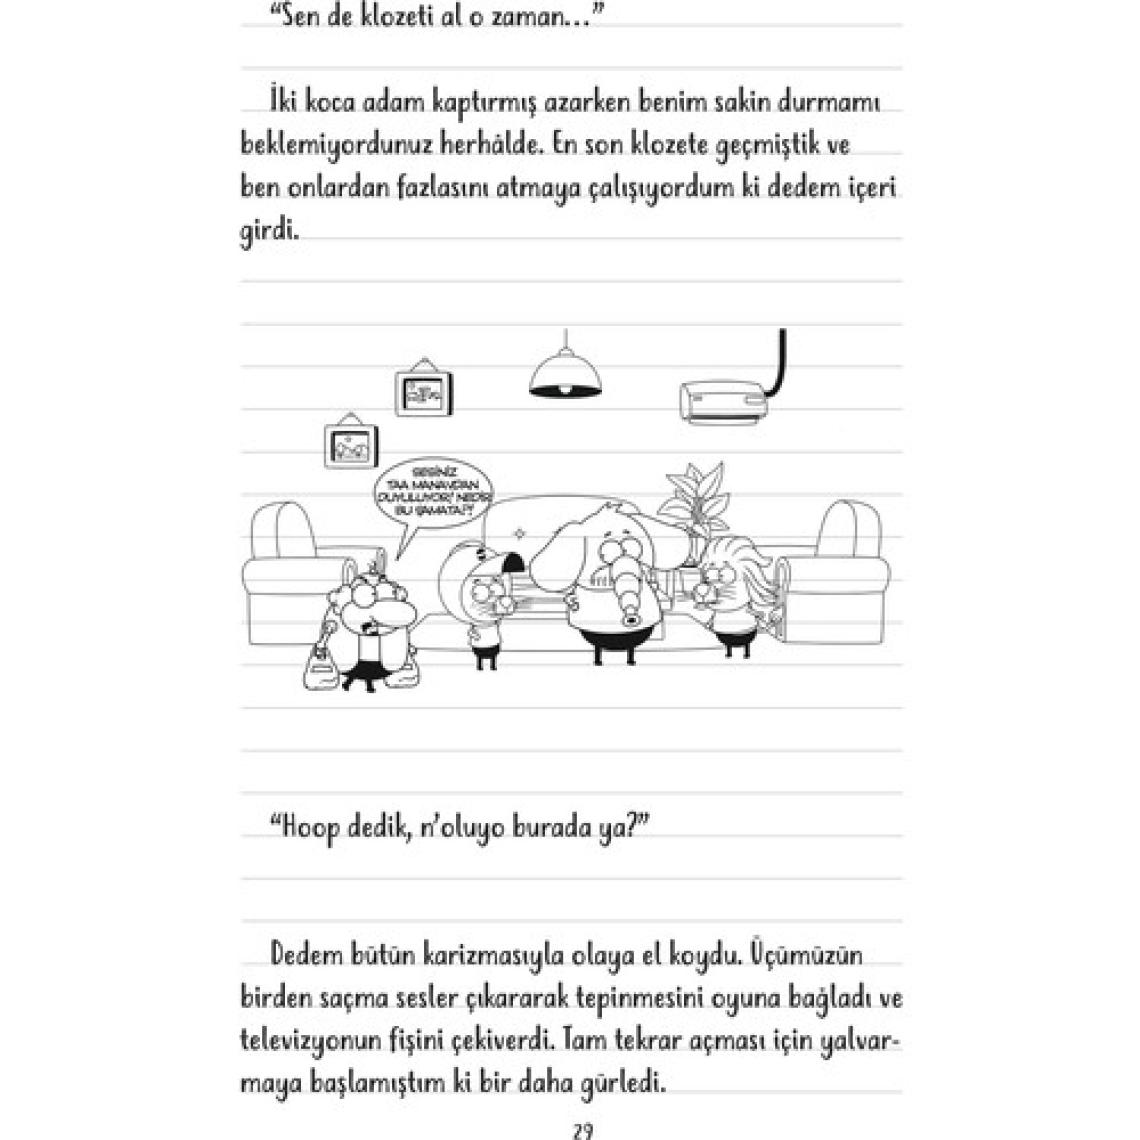 “Sen de klozeti al o zaman...”
İki koca adam kaptırmış azarken benim sakin durmamı
beklemiyordunuz herhâlde. En son klozete geçmiştik ve
ben onlardan fazlasını atmaya çalışıyordum ki dedem içeri
girdi.
SESİNİZ
TAA MANAVDAN
DUYULUYOR! NEDİR
BU ŞAMATA!?
“Hoop dedik, n’oluyo burada ya?”
Dedem bütün karizmasıyla olaya el koydu. Üçümüzün
birden saçma sesler çıkararak tepinmesini oyuna bağladı ve
televizyonun fişini çekiverdi. Tam tekrar açması için yalvar-
maya başlamıştım ki bir daha gürledi.
29